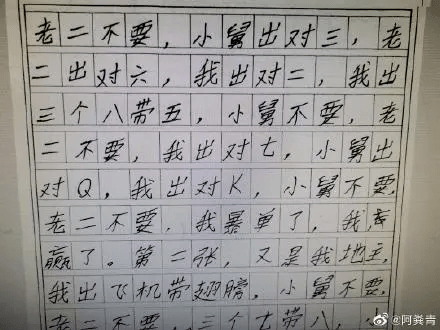 老二不要，小舅出对三，老
二出对六，我出对二，我出
三个八带五，小舅不要，老
二不要，我出对七，小舅出
对Q，我出对K，小舅不要，
老二不要，我暴单了，我
赢了。第二张，又是我地主，
我出飞机带翅膀，小舅不要，
老二不要，三个七带八，
@阿粪青